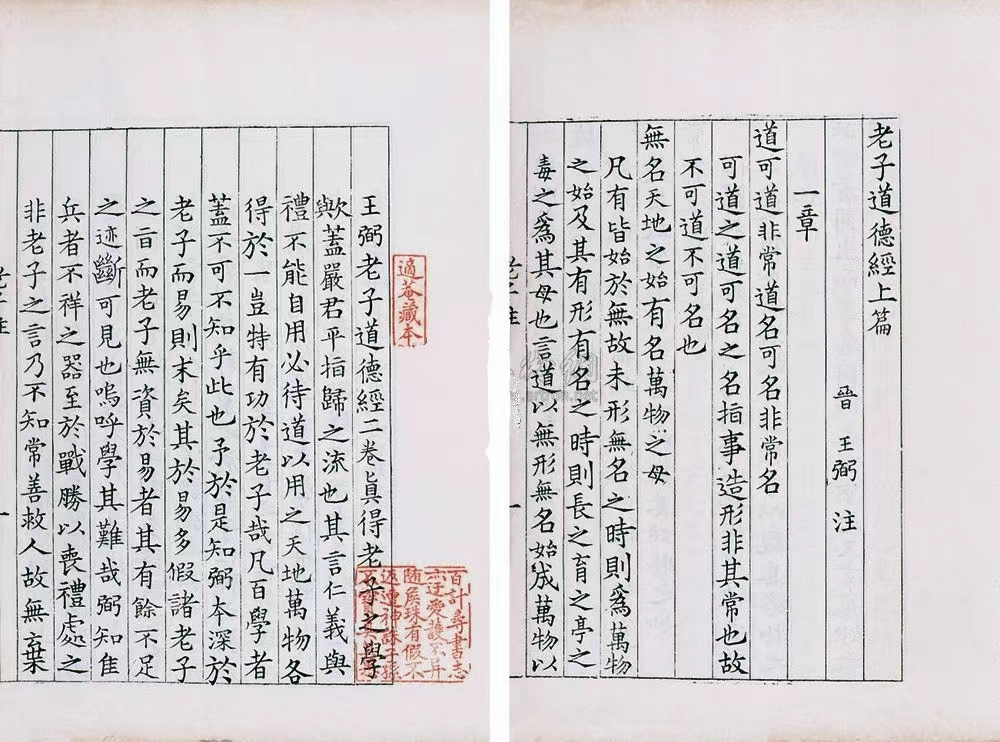 老子道德經上篇
晉 王弼 注
一章
道可道非常道名可名非常名
可道之道可名之名指事造形非其常也故
不可道不可名也
無名天地之始有名萬物之母
凡有皆始於無故未形無名之時則爲萬物
之始及其有形有名之時則長之育之亭之
毒之爲其母也言道以無形無名始成萬物以
適菴藏本
百計尋書志
亦迂愛護不異
隨侯珠有假不
返遭神誅子孫
王弼老子道德經二卷眞得老子之學
歟蓋嚴君平指歸之流也其言仁義與
禮不能自用必待道以用之天地萬物各
得於一豈特有功於老子哉凡百學者
蓋不可不知乎此也予於是知弼本深於
老子而易則末矣其於易多假諸老子
之旨而老子無資於易者其有餘不足
之迹斷可見也嗚呼學其難哉弼知佳
兵者不祥之器至於戰勝以喪禮處之
非老子之言乃不知常善救人故無棄